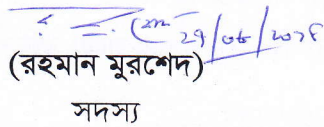 ২৭/০৮/২০২৪
(রহমান মুরশেদ)
সদস্য